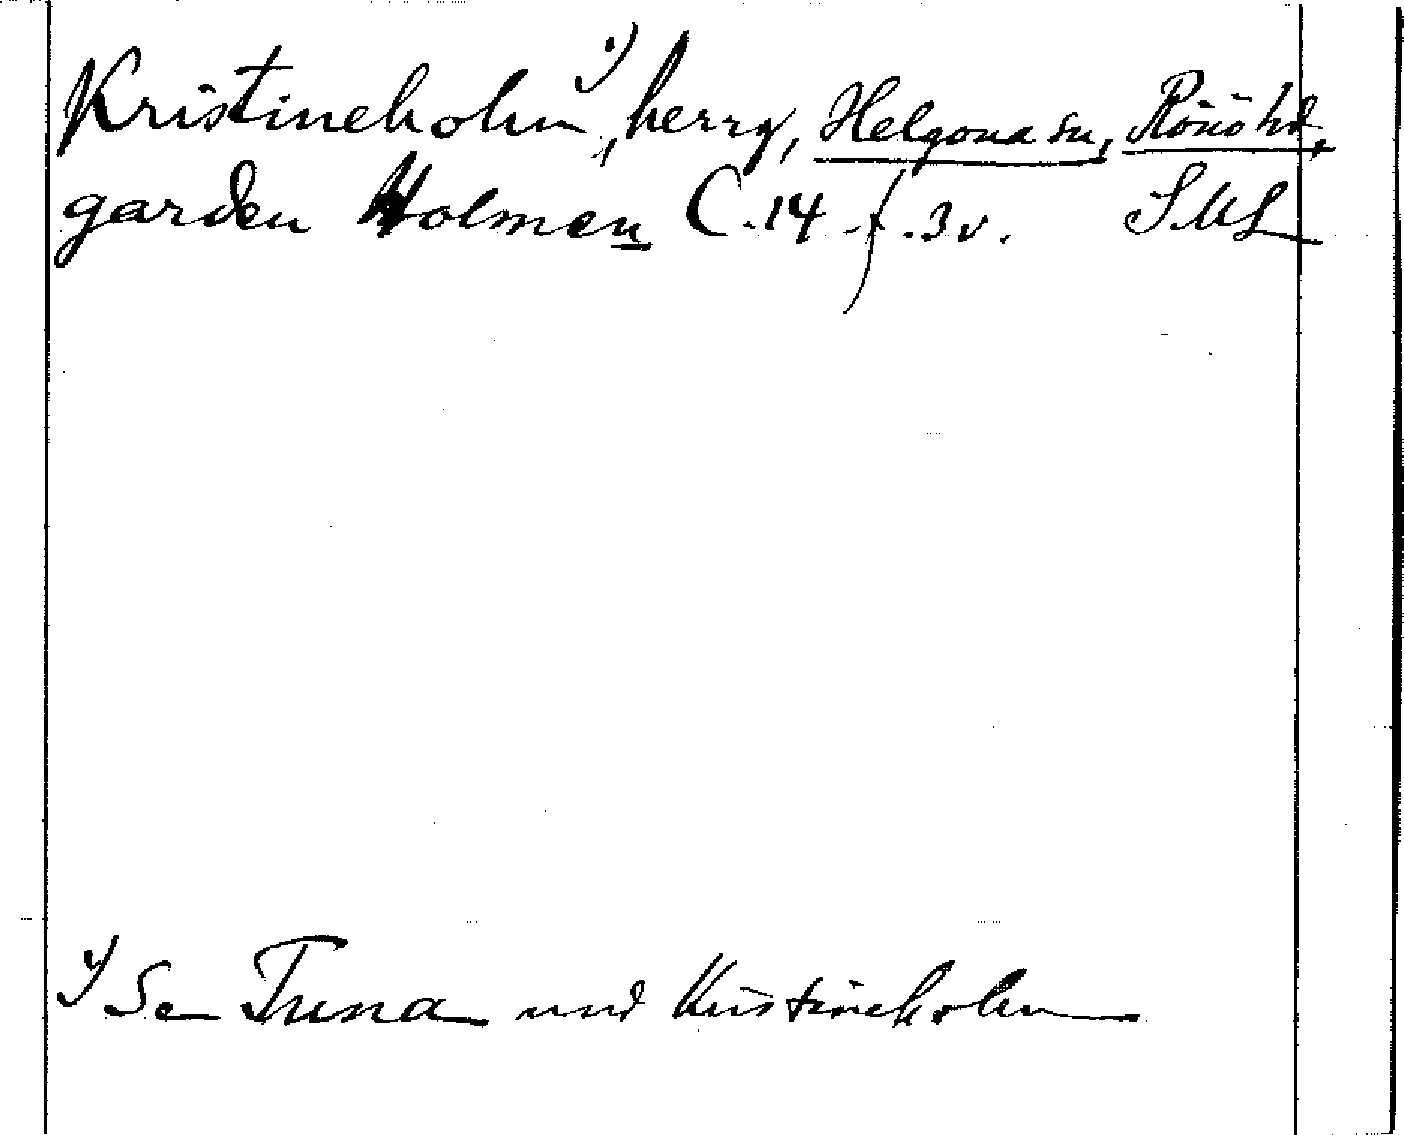 Kristineholm ¹⁾, herrg, Helgona sn, Rönö hd,
garden Holmen C.14 f.3v. SML
¹⁾ Se Tuna und Kristineholm